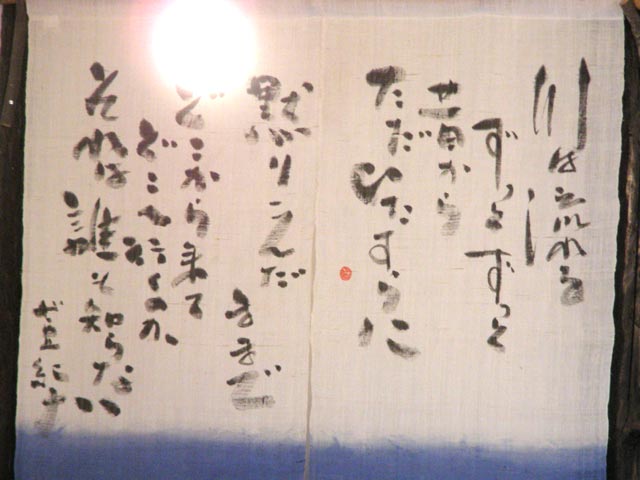 川は流れる
ずっとずっと
昔から
ただひたすらに
黙りこんだ
ままで
どこから来て
どこへ行くのか
それは誰も知らない